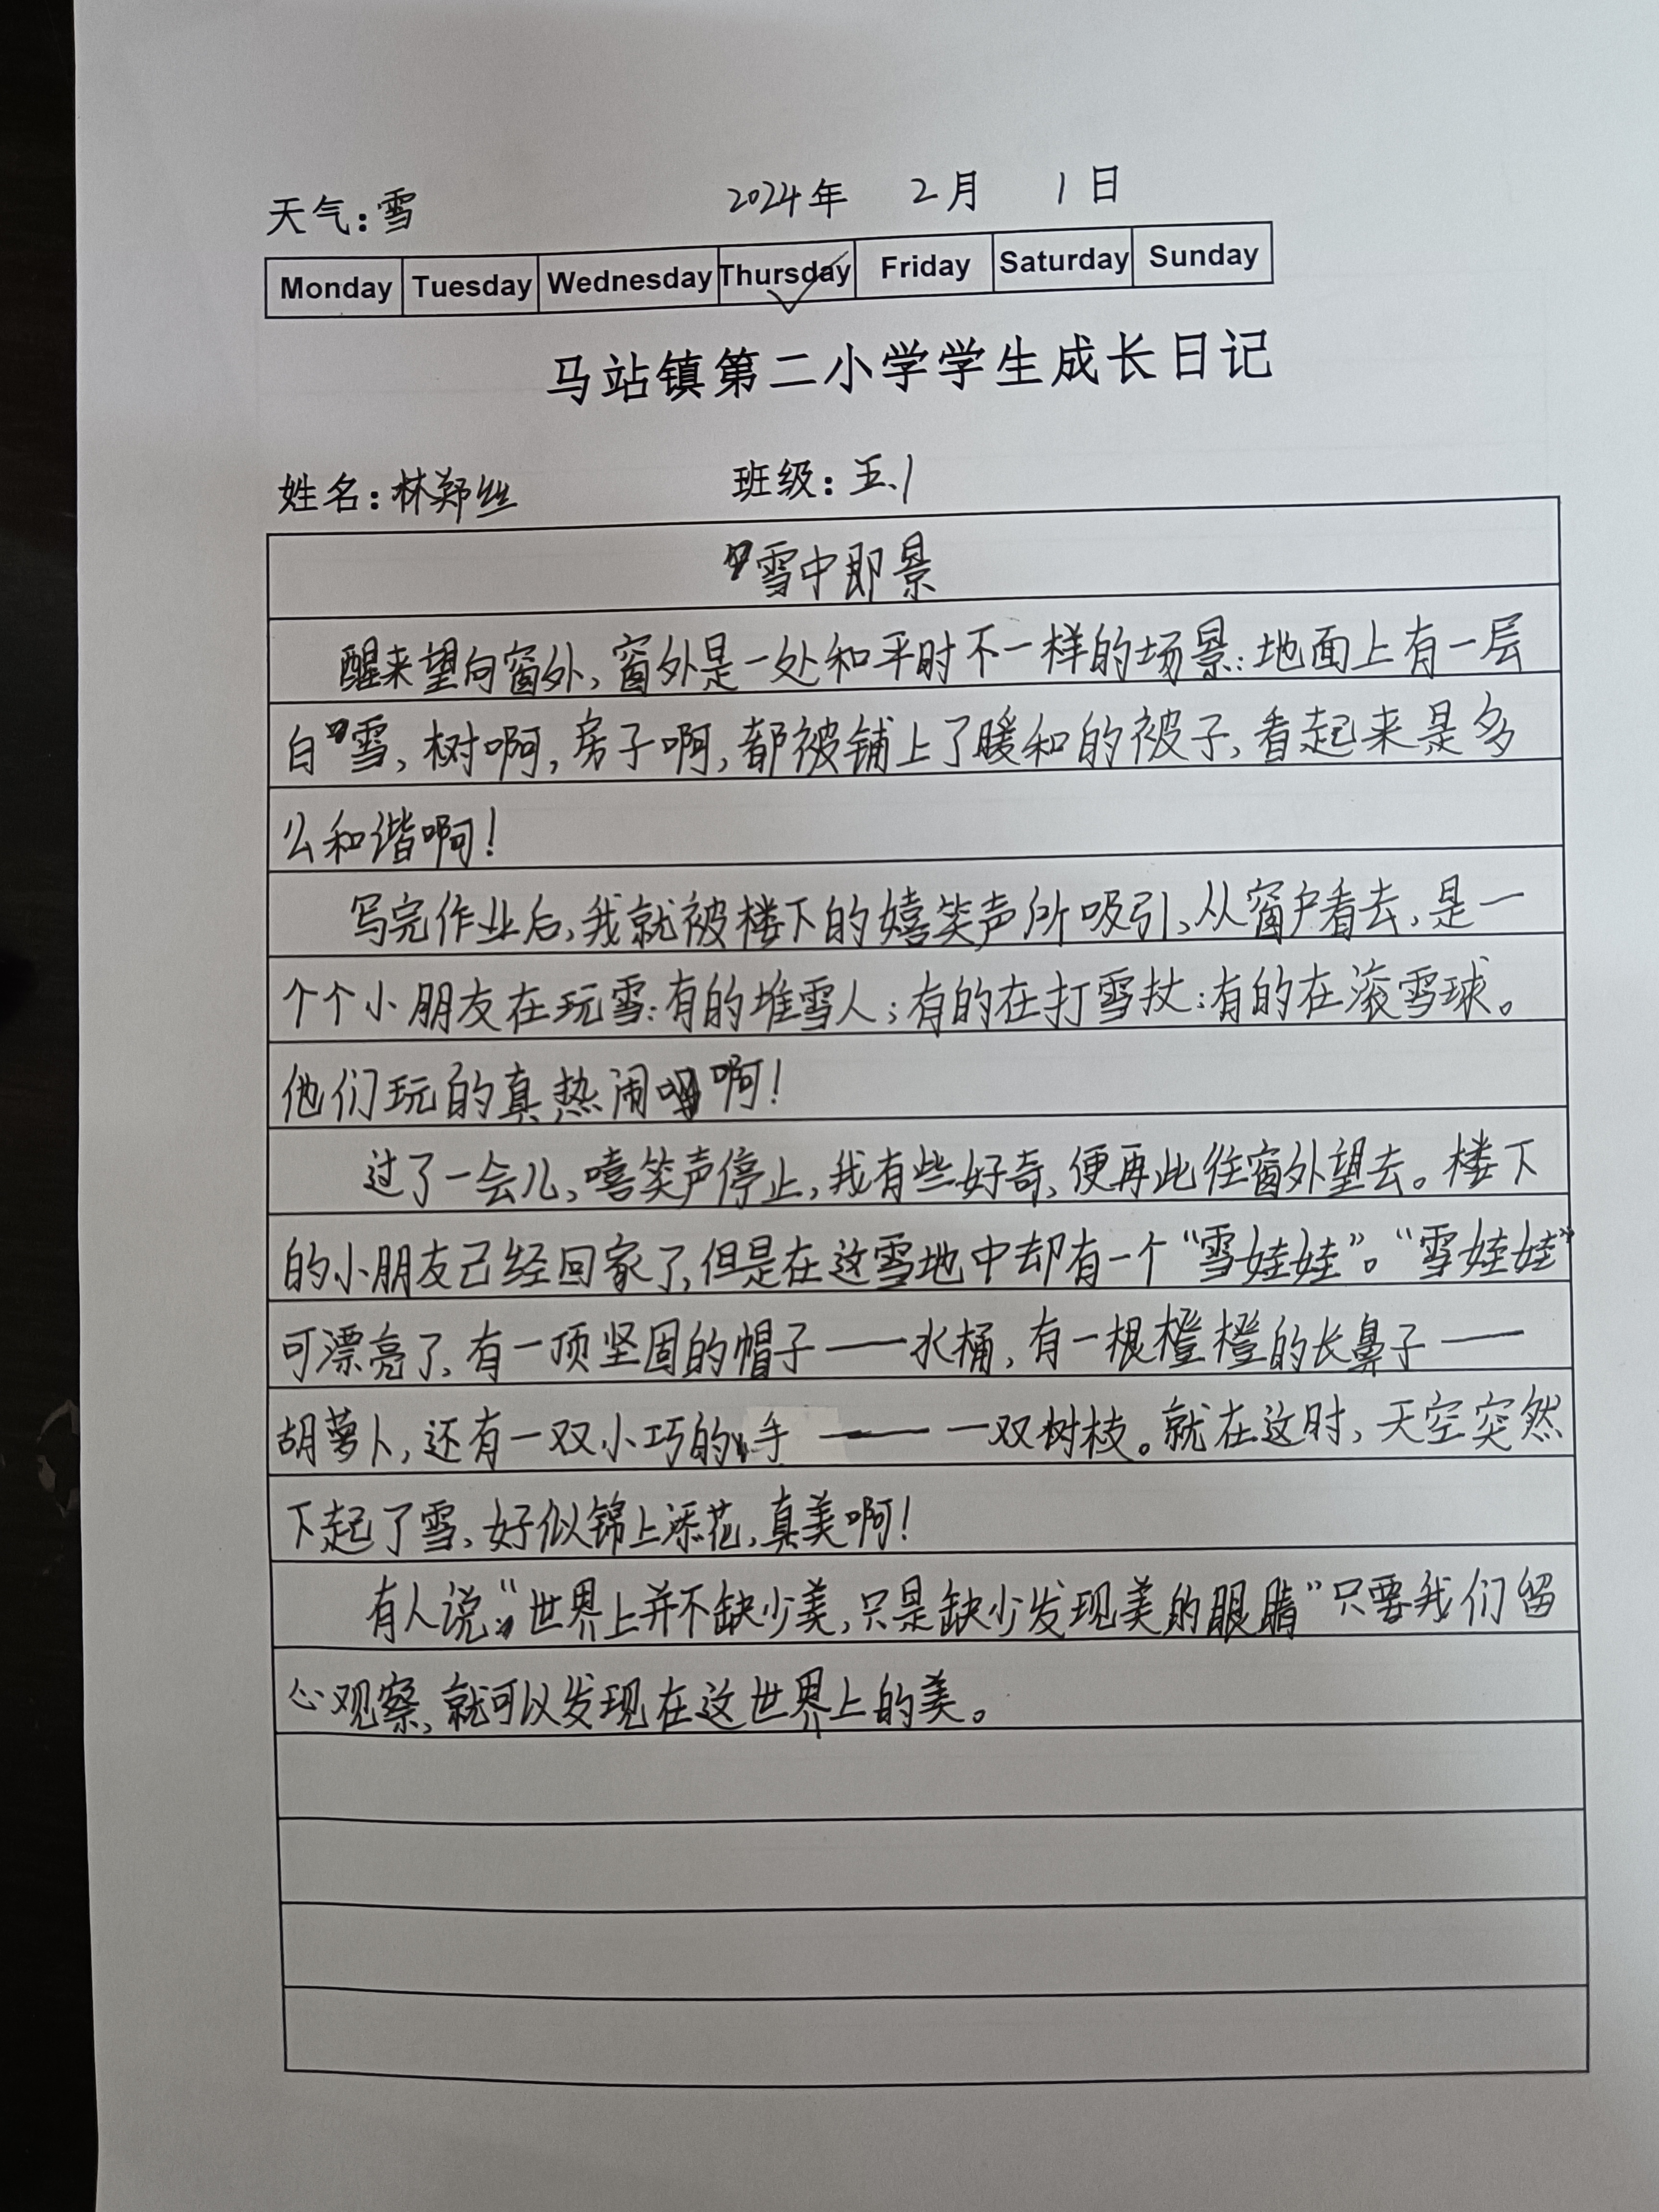 天气：雪 2024年 2月 1日
Monday Tuesday Wednesday Thursday Friday Saturday Sunday
马站镇第二小学学生成长日记
姓名：林郑丝 班级：五.1
雪中即景
醒来望向窗外，窗外是一处和平时不一样的场景：地面上有一层
白雪，树啊，房子啊，都被铺上了暖和的被子，看起来是多
么和谐啊！
写完作业后，我就被楼下的嬉笑声所吸引，从窗户看去，是一
个个小朋友在玩雪：有的堆雪人；有的在打雪杖；有的在滚雪球。
他们玩的真热闹啊！
过了一会儿，嘻笑声停止，我有些好奇，便再此往窗外望去。楼下
的小朋友己经回家了，但是在这雪地中却有一个“雪娃娃”。“雪娃娃”
可漂亮了，有一顶坚固的帽子——水桶，有一根橙橙的长鼻子——
胡萝卜，还有一双小巧的手——一双树枝。就在这时，天空突然
下起了雪，好似锦上添花，真美啊！
有人说“世界上并不缺少美，只是缺少发现美的眼睛”只要我们留
心观察，就可以发现在这世界上的美。